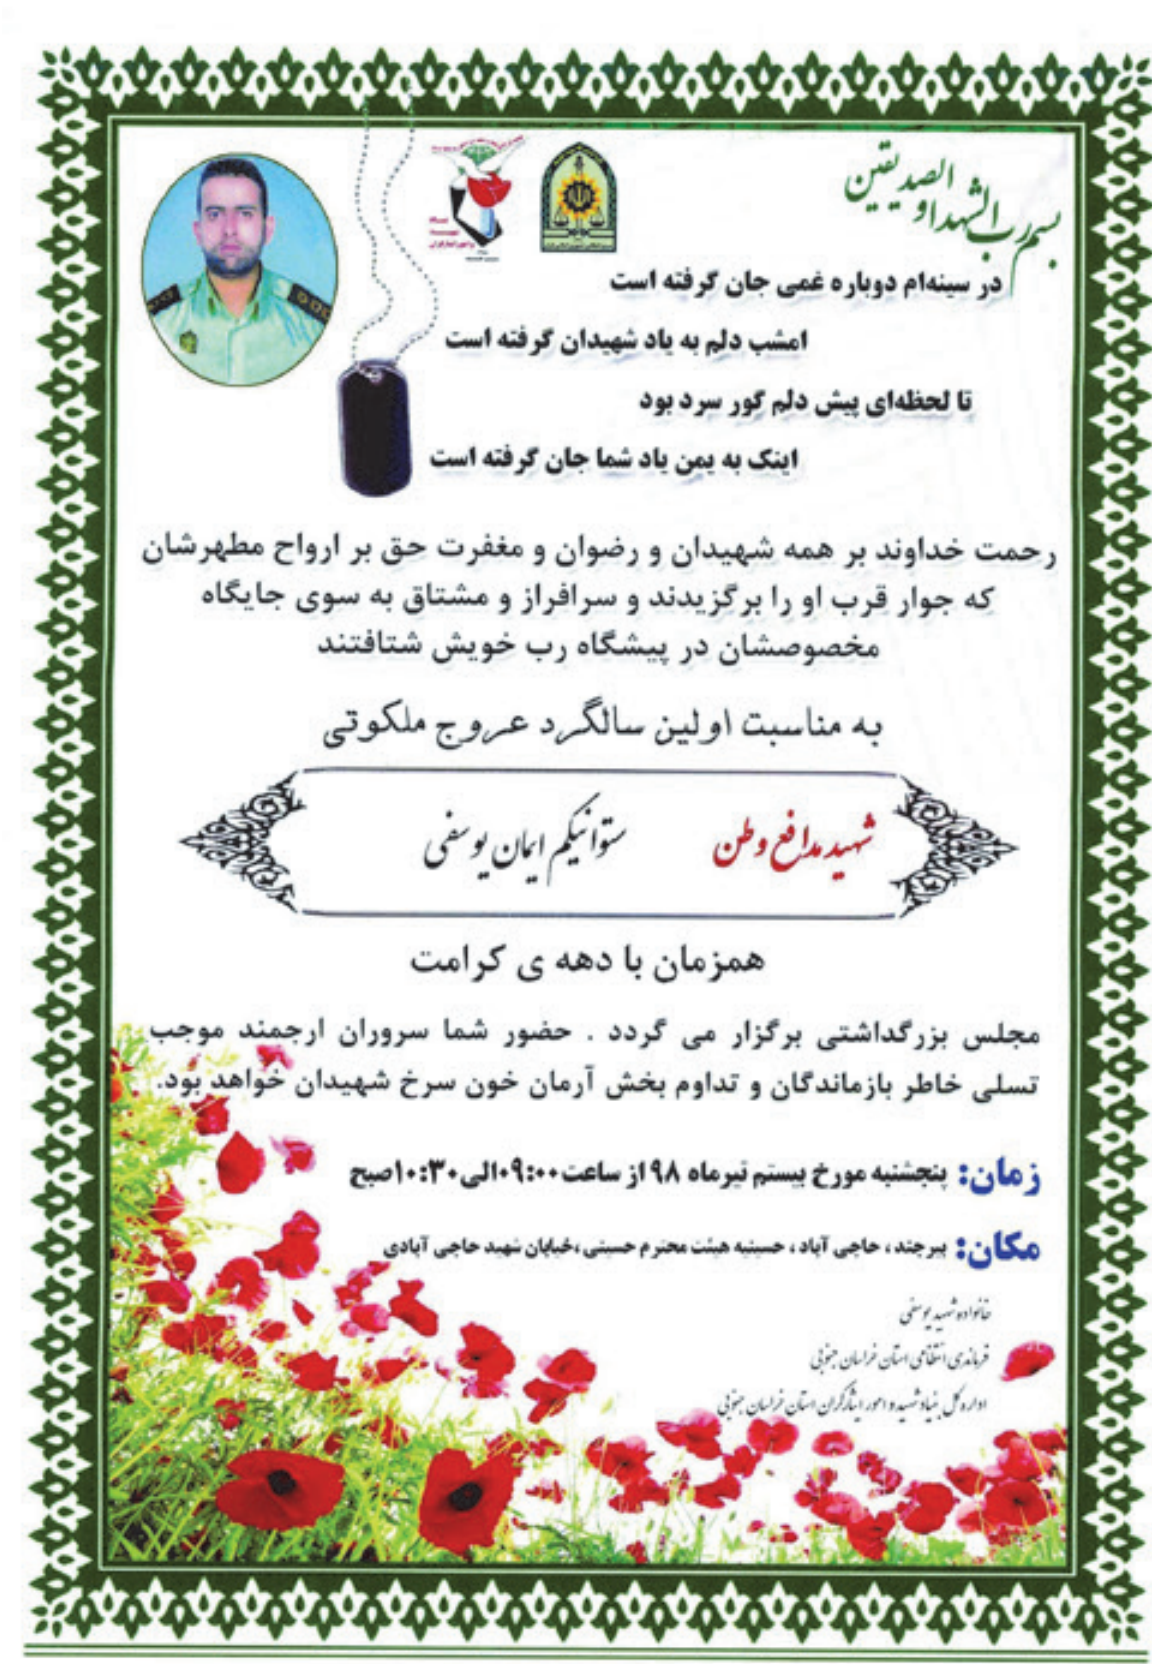 بسم رب الشهدا و الصدیقین
در سینه‌ام دوباره غمی جان گرفته است
امشب دلم به یاد شهیدان گرفته است
تا لحظه‌ای پیش دلم گور سرد بود
اینک به یمن یاد شما جان گرفته است
رحمت خداوند بر همه شهیدان و رضوان و مغفرت حق بر ارواح مطهرشان
که جوار قرب او را برگزیدند و سرافراز و مشتاق به سوی جایگاه
مخصوصشان در پیشگاه رب خویش شتافتند
به مناسبت اولین سالگرد عروج ملکوتی
شهید مدافع وطن ستوانیکم ایمان یوسفی
همزمان با دهه ی کرامت
مجلس بزرگداشتی برگزار می گردد . حضور شما سروران ارجمند موجب
تسلی خاطر بازماندگان و تداوم بخش آرمان خون سرخ شهیدان خواهد بود.
زمان: پنجشنبه مورخ بیستم تیرماه ۹۸ از ساعت ۰۹:۰۰الی ۱۰:۳۰صبح
مکان: بیرجند ، حاجی آباد ، حسینیه هیئت محترم حسینی ،خیابان شهید حاجی آبادی
خانواده شهید یوسفی
فرماندهی انتظامی استان خراسان جنوبی
اداره کل بنیاد شهید و امور ایثارگران استان خراسان جنوبی